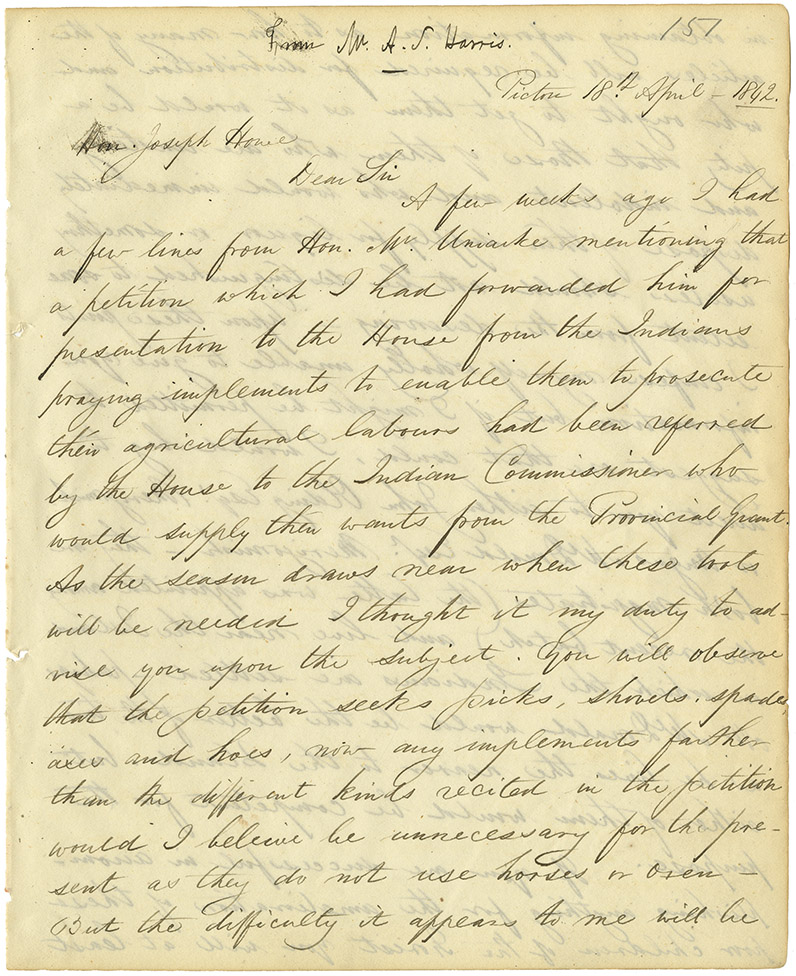 From Mr. A. S. Harris.
151
Pictou 18th April - 1842.
Hon. Joseph Howe
Dear Sir
A few weeks ago I had
a few lines from Hon. Mr. Uniacke mentioning that
a petition which I had forwarded him for
presentation to the House from the Indians
praying implements to enable them to prosecute
their agricultural labours had been referred
by the House to the Indian Commissioner who
would supply their wants from the Provincial Grant.
As the season draws near when these tools
will be needed I thought it my duty to ad-
vise you upon the subject. You will observe
that the petition seeks picks, shovels, spades,
axes and hoes, now any implements farther
than the different kinds recited in the petition
would I beleive be unnecessary for the pre-
sent as they do not use horses or oxen -
But the difficulty it appears to me will be